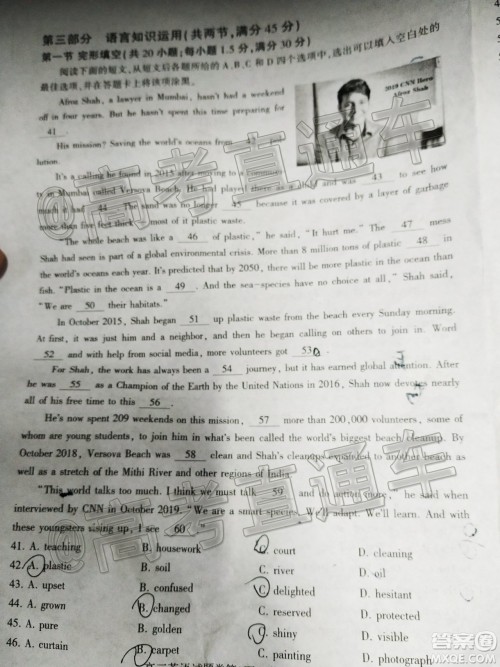 第三部分 语言知识运用(共两节,满分45分)
第一节 完形填空(共20小题;每小题1.5分,满分30分)
阅读下面的短文,从短文后各题所给的A、B、C和D四个选项中,选出可以填入空白处的
最佳选项,并在答题卡上将该项涂黑。
Afroz Shah, a lawyer in Mumbai, hasn't had a weekend
off in four years. But he hasn't spent this time preparing for
41 .
2019 CNN Hero
Afroz Shah
His mission? Saving the world's oceans from 42 pol-
lution.
It's a calling he found in 2015 after moving to a communi-
ty in Mumbai called Versova Beach. He had played there as a child and was 43 to see how
much it had 44 . The sand was no longer 45 because it was covered by a layer of garbage
more than five feet thick — most of it plastic waste.
"The whole beach was like a 46 of plastic," he said, "It hurt me." The 47 mess
Shah had seen is part of a global environmental crisis. More than 8 million tons of plastic 48 in
the world's oceans each year. It's predicted that by 2050, there will be more plastic in the ocean than
fish. "Plastic in the ocean is a 49 . And the sea-species have no choice at all," Shah said,
"We are 50 their habitats."
In October 2015, Shah began 51 up plastic waste from the beach every Sunday morning.
At first, it was just him and a neighbor, and then he began calling on others to join in. Word
52 and with help from social media, more volunteers got 53 .
For Shah, the work has always been a 54 journey, but it has earned global attention. After
he was 55 as a Champion of the Earth by the United Nations in 2016, Shah now devotes nearly
all of his free time to this 56 .
He's now spent 209 weekends on this mission, 57 more than 200,000 volunteers, some of
whom are young students, to join him in what's been called the world's biggest beach cleanup. By
October 2018, Versova Beach was 58 clean and Shah's cleanups expanded to another beach as
well as a stretch of the Mithi River and other regions of India.
"This world talks too much. I think we must talk 59 and do action more," he said when
interviewed by CNN in October 2019. "We are a smart species. We'll adapt. We'll learn. And with
these youngsters rising up, I see 60 ."
41. A. teaching B. housework C. court D. cleaning
42. A. plastic B. soil C. river D. oil
43. A. upset B. confused C. delighted D. hesitant
44. A. grown B. changed C. reserved D. protected
45. A. pure B. golden C. shiny D. visible
46. A. curtain B. carpet C. painting D. photograph
@高考直通车
@高考直通车
@高考直通车
答案圈